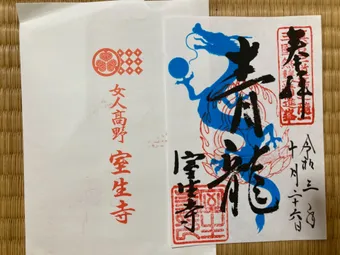 女人高野 室生寺
奉拝
青龍
室生寺
令和三年
十一月二十六日